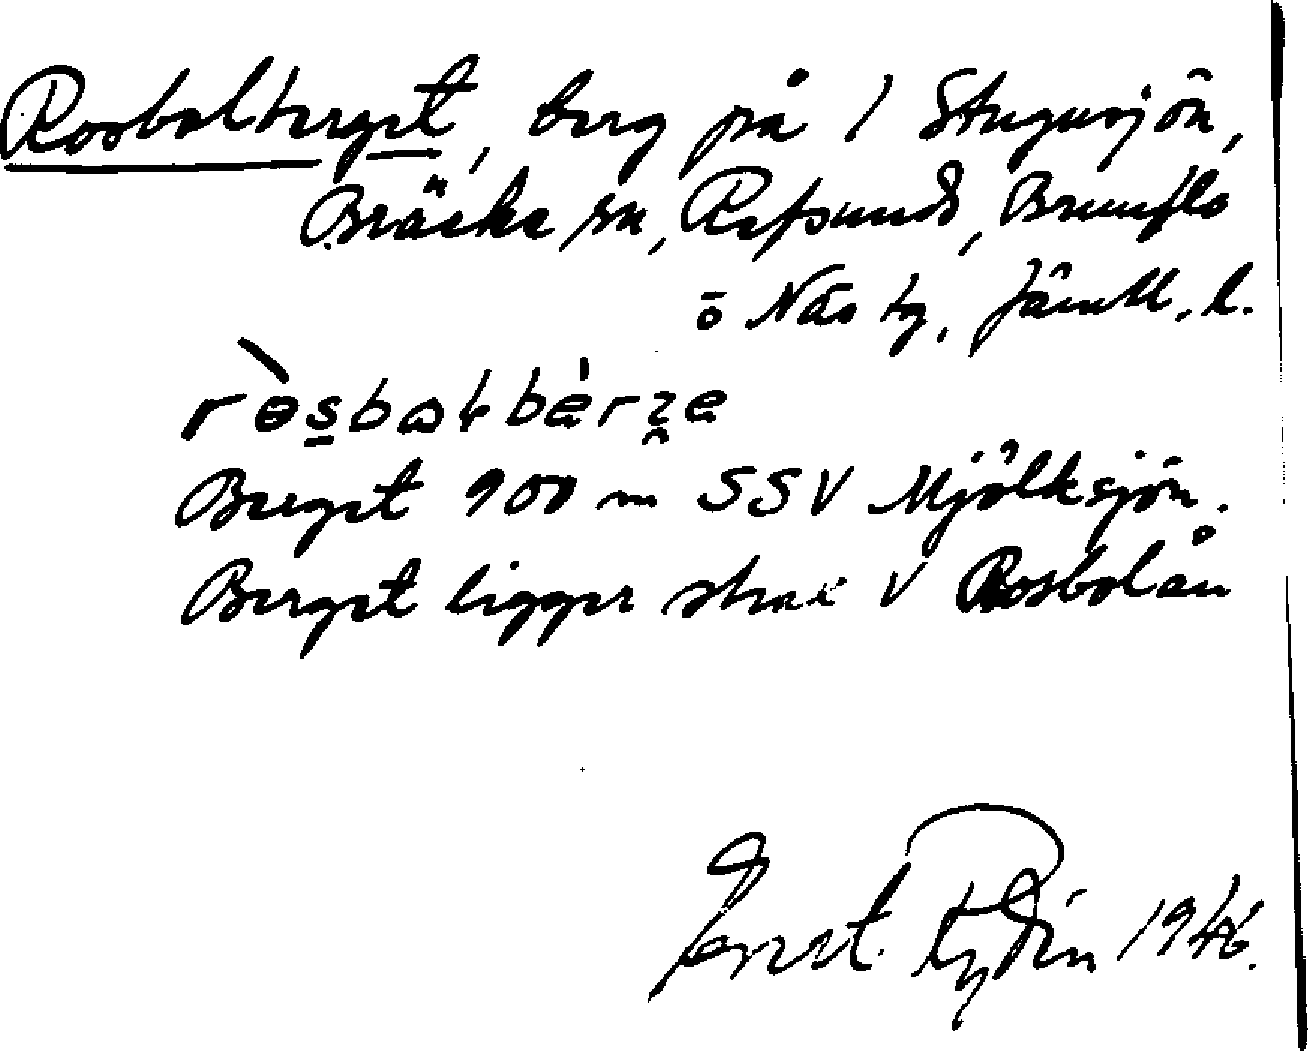 Rosbolberget, berg på 1 Stugusjön,
Bräcke sn, Refsunds, Brunflo
o Näs tg, Jämtl. l.
Berget 900 m SSV Mjölksjön.
Berget ligger strax V Rosbolån
Ernst Rydin 1946.